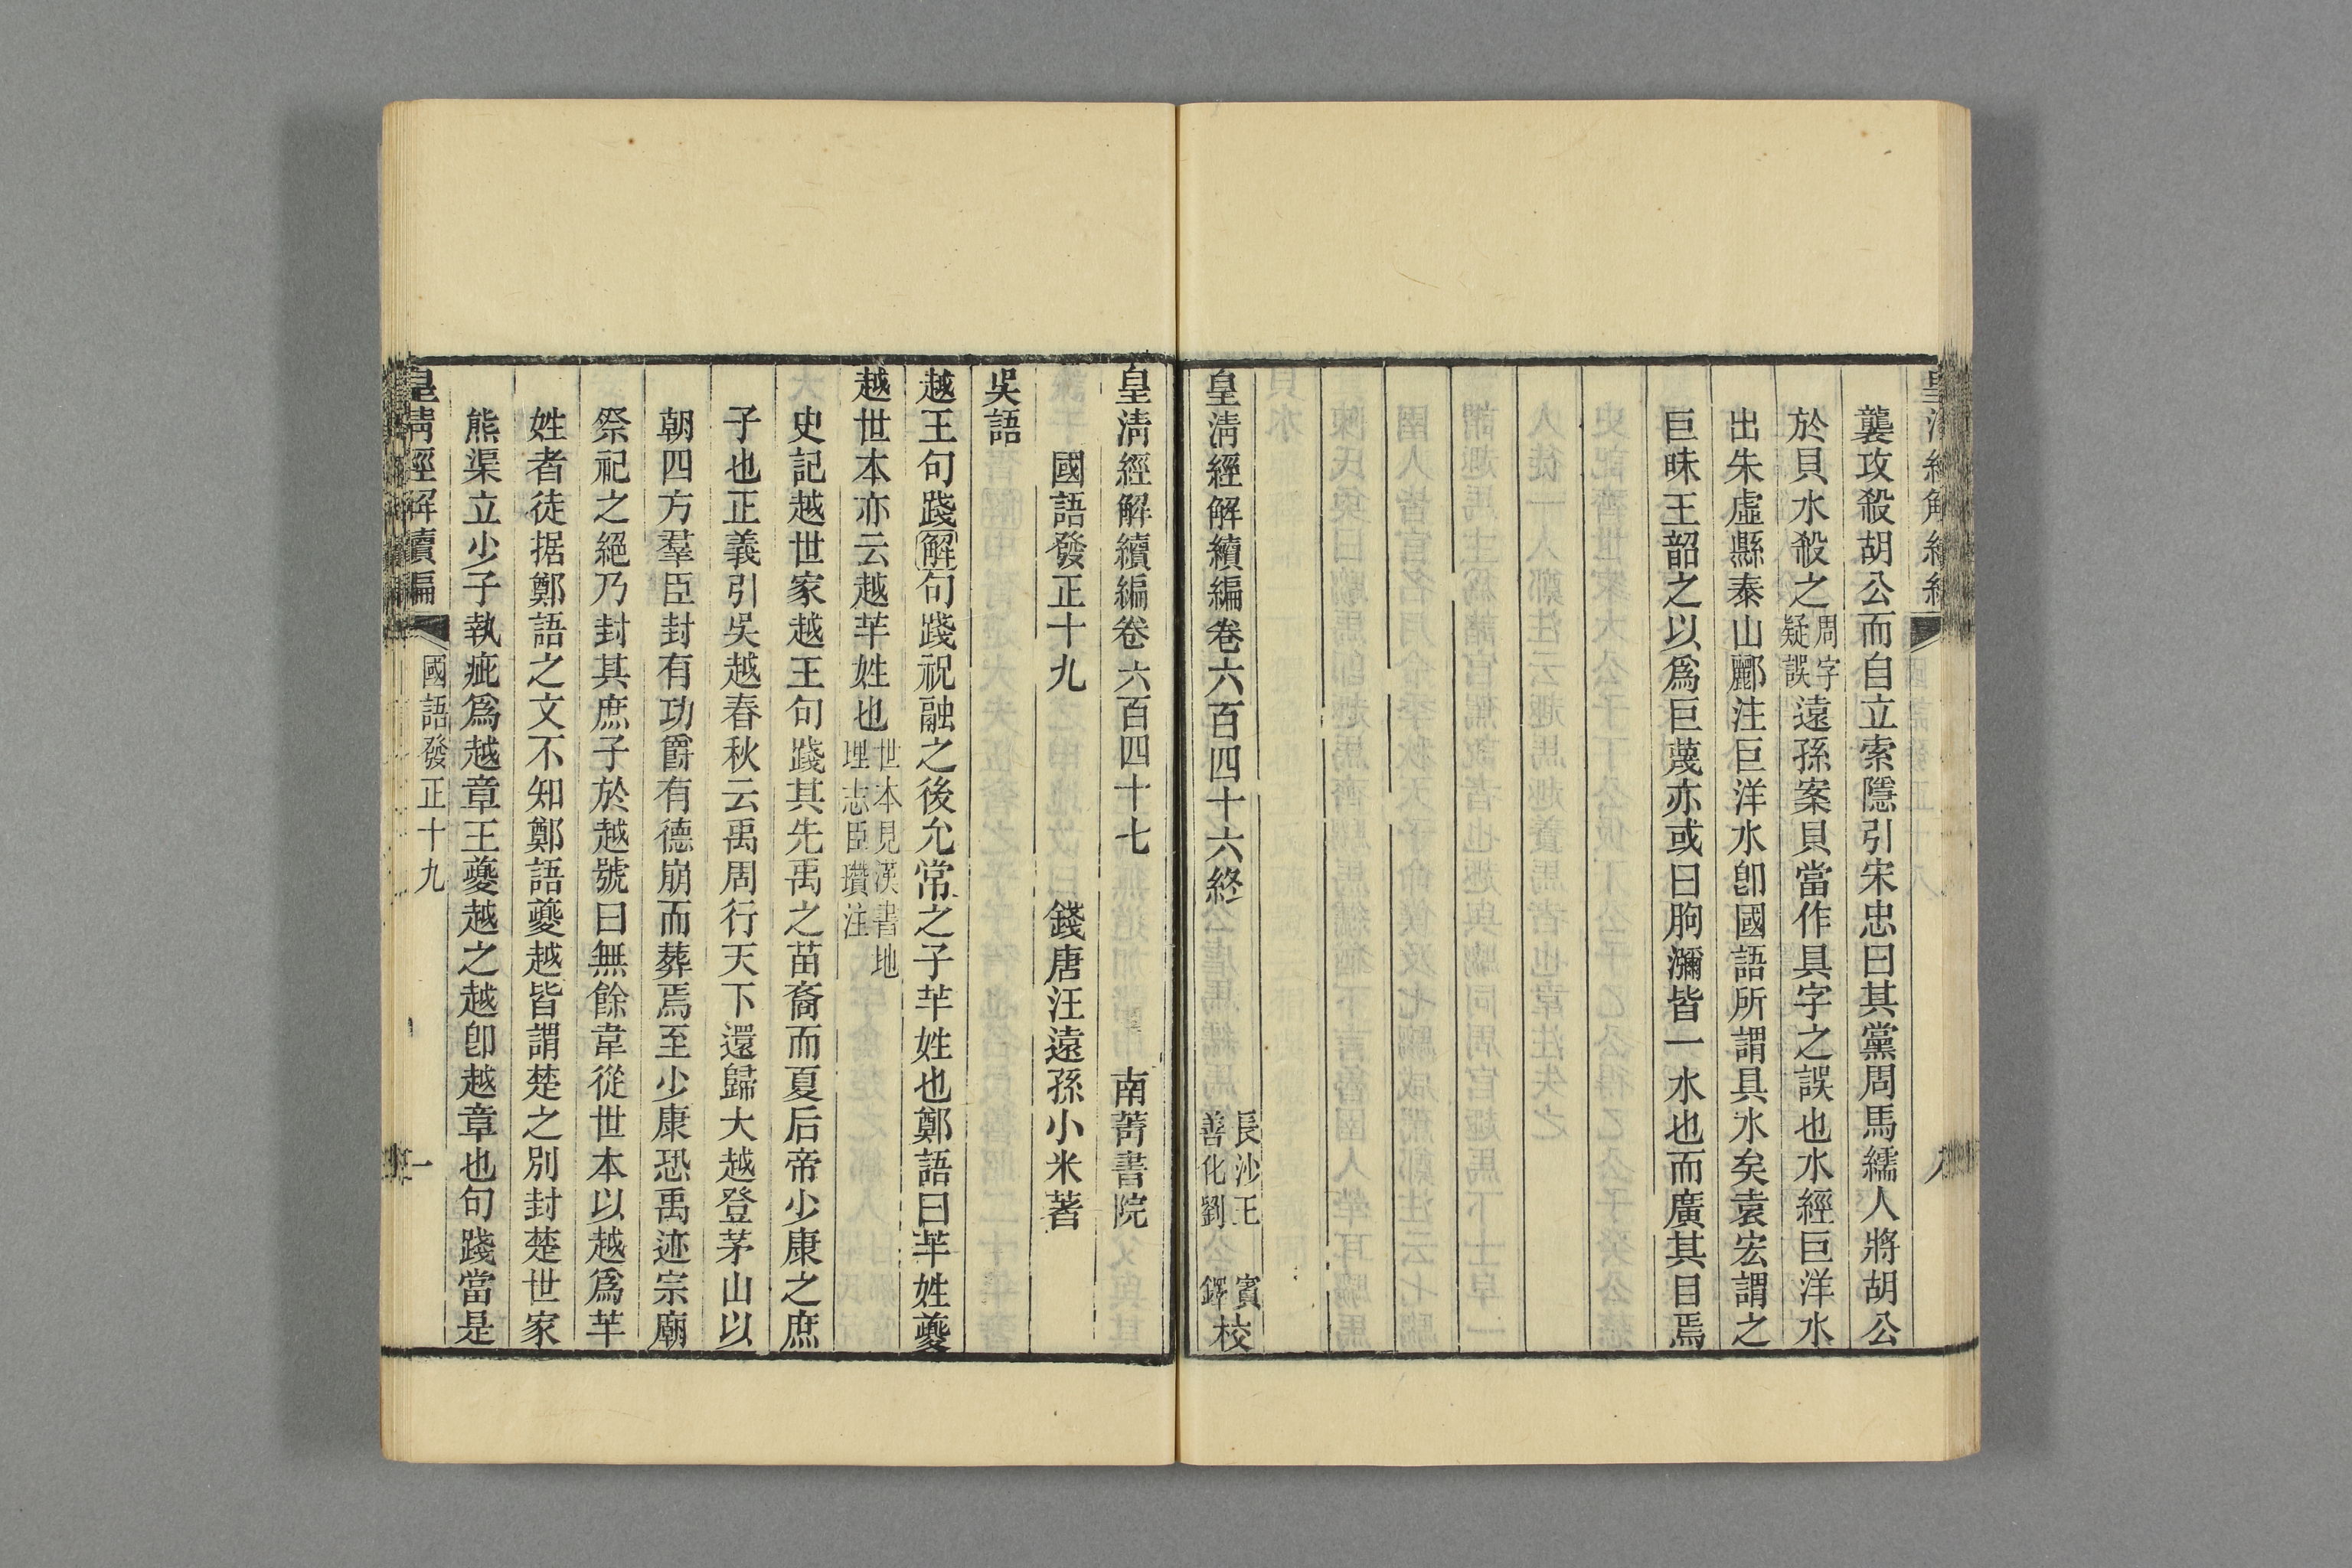 襲攻殺胡公而自立索隱引宋忠曰其黨周馬繻人將胡公
於貝水殺之周字疑誤遠孫案貝當作具字之誤也水經巨洋水
出朱虛縣泰山酈注巨洋水卽國語所謂具水矣袁宏謂之
巨昧王韶之以爲巨蔑亦或曰朐瀰皆一水也而廣其目焉
皇淸經解續編卷六百四十六終
長沙王 賓
善化劉 鐸校
皇淸經解續編卷六百四十七 南菁書院
國語發正十九 錢唐汪遠孫小米著
吳語
越王句踐解句踐祝融之後允常之子芊姓也鄭語曰芊姓夔
越世本亦云越芊姓也世本見漢書地理志臣瓚注
史記越世家越王句踐其先禹之苗裔而夏后帝少康之庶
子也正義引吳越春秋云禹周行天下還歸大越登茅山以
朝四方羣臣封有功爵有德崩而葬焉至少康恐禹迹宗廟
祭祀之絕乃封其庶子於越號曰無餘韋從世本以越爲芊
姓者徒据鄭語之文不知鄭語夔越皆謂楚之別封楚世家
熊渠立少子執疵爲越章王夔越之越卽越章也句踐當是
皇淸經解續編 國語發正十九 一